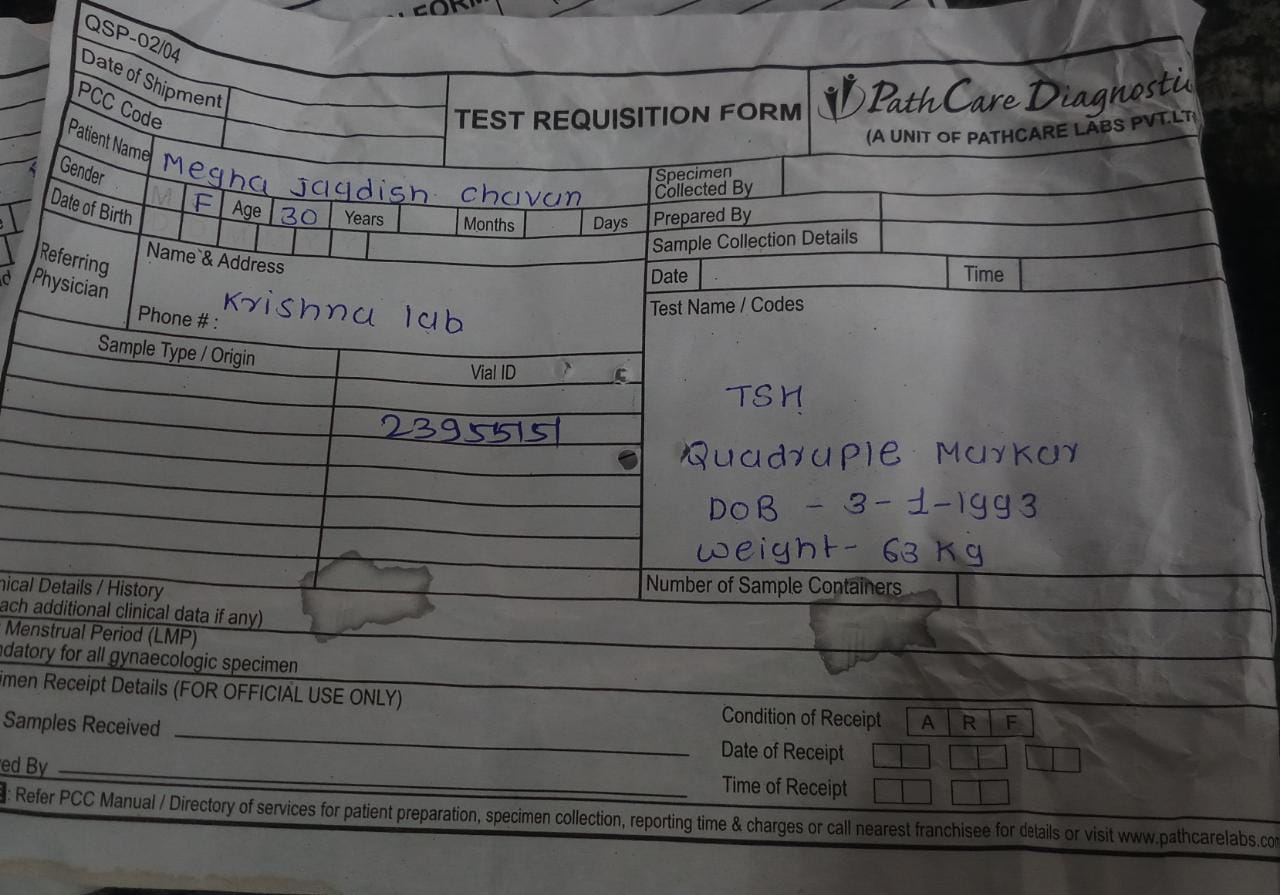 FORM
QSP-02/04
Date of Shipment
PCC Code
TEST REQUISITION FORM
PathCare Diagnosti
(A UNIT OF PATHCARE LABS PVT.LT
Patient Name Megha Jagdish Chavan
Gender M F Age 30 Years Months Days
Date of Birth
Referring Physician
Name & Address
Krishna lab
Phone # :
Specimen Collected By
Prepared By
Sample Collection Details
Date Time
Test Name / Codes
TSH
Quadruple Markar
DOB - 3-1-1993
weight- 63 Kg
Sample Type / Origin Vial ID
23955151
Number of Sample Containers
nical Details / History
ach additional clinical data if any)
Menstrual Period (LMP)
ndatory for all gynaecologic specimen
imen Receipt Details (FOR OFFICIAL USE ONLY)
Samples Received
ed By
Condition of Receipt A R F
Date of Receipt
Time of Receipt
: Refer PCC Manual / Directory of services for patient preparation, specimen collection, reporting time & charges or call nearest franchisee for details or visit www.pathcarelabs.com